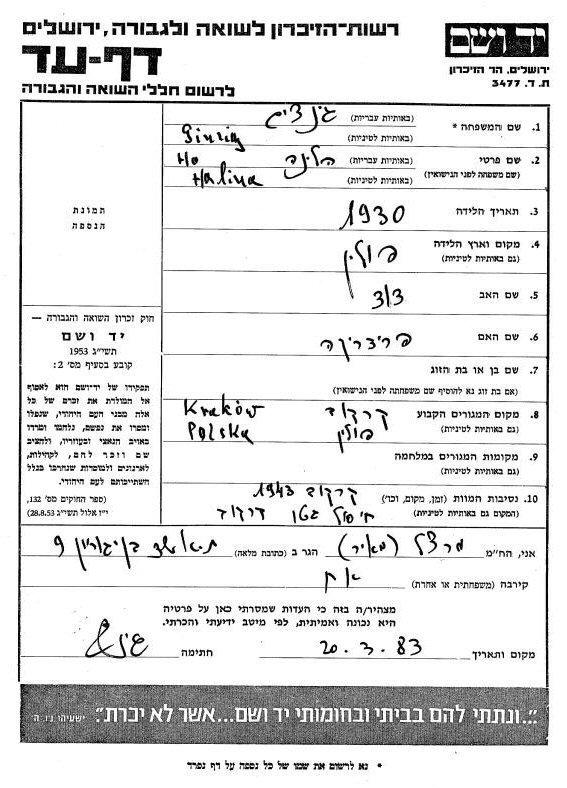 יד ושם
ירושלים, הר הזיכרון
ת. ד. 3477
רשות-הזיכרון לשואה ולגבורה, ירושלים
דף-עד
לרשום חללי השואה והגבורה
תמונת
הנספה
חוק זכרון השואה והגבורה —
יד ושם
תשי״ג 1953
קובע בסעיף מס׳ 2:
תפקידו של יד-ושם הוא לאסוף
אל המולדת את זכרם של כל
אלה מבני העם היהודי, שנפלו
ומסרו את נפשם, נלחמו ומרדו
באויב הנאצי ובעוזריו, ולהציב
שם וזכר להם, לקהילות,
לארגונים ולמוסדות שנחרבו בגלל
השתייכותם לעם היהודי.
(ספר החוקים מס׳ 132,
י״ז אלול תשי״ג 28.8.53)
1. שם המשפחה * (באותיות עבריות)
(באותיות לטיניות)
2. שם פרטי (באותיות עבריות) הלינה
(שם משפחה לפני הנישואין) (באותיות לטיניות) Halina
3. תאריך הלידה 1930
4. מקום וארץ הלידה פולין
(גם באותיות לטיניות)
5. שם האב
6. שם האם
7. שם בן או בת הזוג
(אם בת זוג נא להוסיף שם משפחתה לפני הנישואין)
8. מקום המגורים הקבוע קרקוב Kraków
(גם באותיות לטיניות) פולין Polska
9. מקומות המגורים במלחמה
10. נסיבות המוות (זמן, מקום, וכו׳) קרקוב 1943
(המקום גם באותיות לטיניות) חיסול גטו קרקוב
אני, הח״מ (מאיר) הגר ב (כתובת מלאה) בן גוריון 9
קירבה (משפחתית או אחרת) אח
מצהיר/ה בזה כי העדות שמסרתי כאן על פרטיה
היא נכונה ואמיתית, לפי מיטב ידיעתי והכרתי.
מקום ותאריך 20.3.83 חתימה
״...ונתתי להם בביתי ובחומותי יד ושם...אשר לא יכרת״: ישעיהו נ״ו ה
* נא לרשום את שמו של כל נספה על דף נפרד